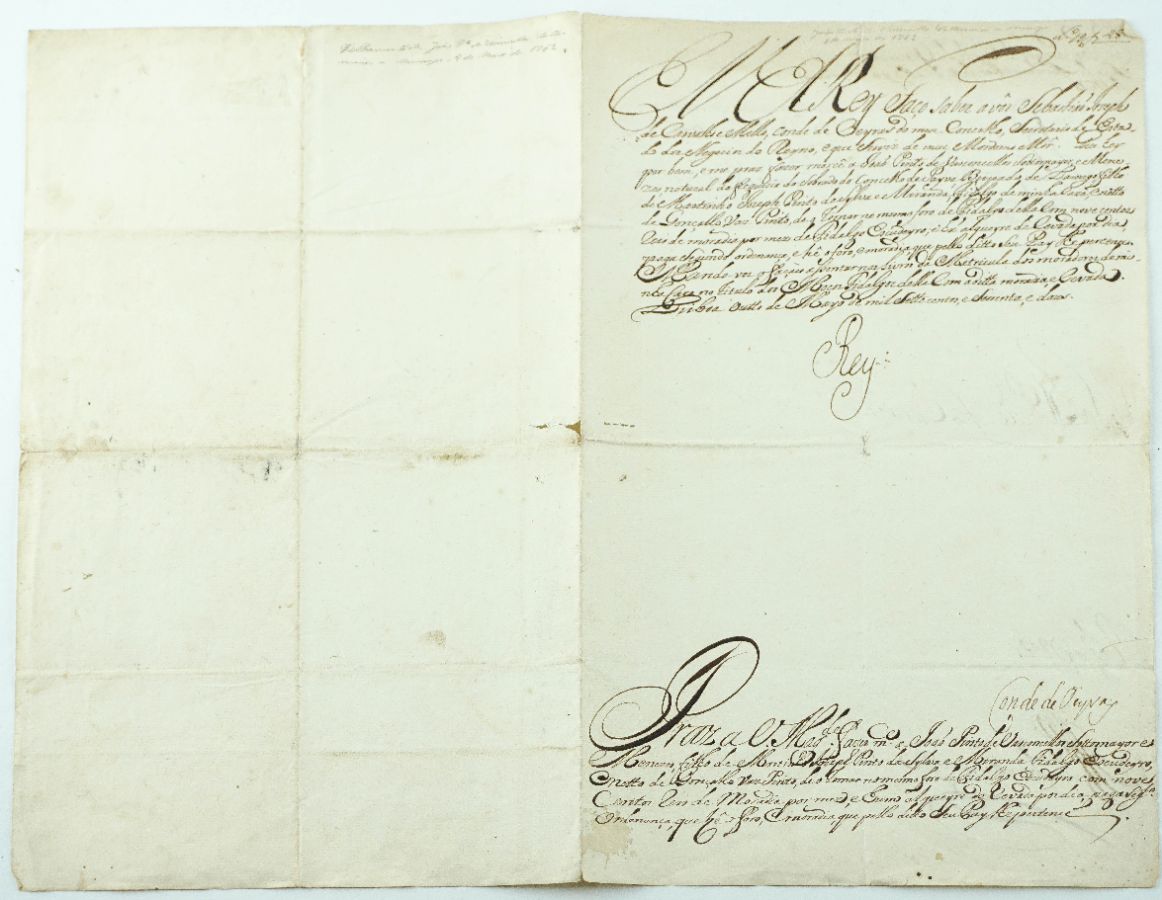 EU ElRey Faço saber a vós Sebastião Joseph
de Carvalho e Mello, conde de Oeyras do meu Concelho, Secretario de Esta-
do dos Negocios do Reyno, e que servis de meu Mordomo Mór. Hei
por bem, e me praz fazer mercê a João Pinto de Vasconcellos Sottomayor, e Mene
zes natural da freguezia do Sobrado do Concelho de Payva Bispado de Lamego filho
de Martinho Joseph Pinto da Sylva e Miranda, Fidalgo de minha Caza, e netto
de Gonçallo Vaz Pinto, de o Tomar no mesmo foro de Fidalgo della Com nove centos
Reis de moradia por mez de Fidalgo Escudeyro, e hū alqueyre de Cevada por dia
paga segundo ordenança, e hé o foro, e moradia, que pello ditto Seu Pay lhe pertençe.
Mando vos o façaes assentar no Livro da Matricula dos moradores da mi-
nha Caza no titulo dos Moços Fidalgos della Com a ditta moradia, e Cevada.
Lisboa outto de Mayo de mil settecentos, e secenta, e dous.
Rey
Conde de Oeyras
Praz a V. Mag.de fazer m.ce a João Pinto de Vasconcellos Sottomayor e
Menezes, filho de Martinho Joseph Pinto da Sylva e Miranda Fidalgo Escudeyro,
e Netto de Gonçallo Vaz Pinto, de o tomar no mesmo foro de Fidalgo Escudeyro com nove
Centos Reis de Moradia por mez, e hum alqueyre de Cevada por dia paga seg.do
Ordenança, que hé o foro, e moradia que pello ditto Seu Pay lhe pertence